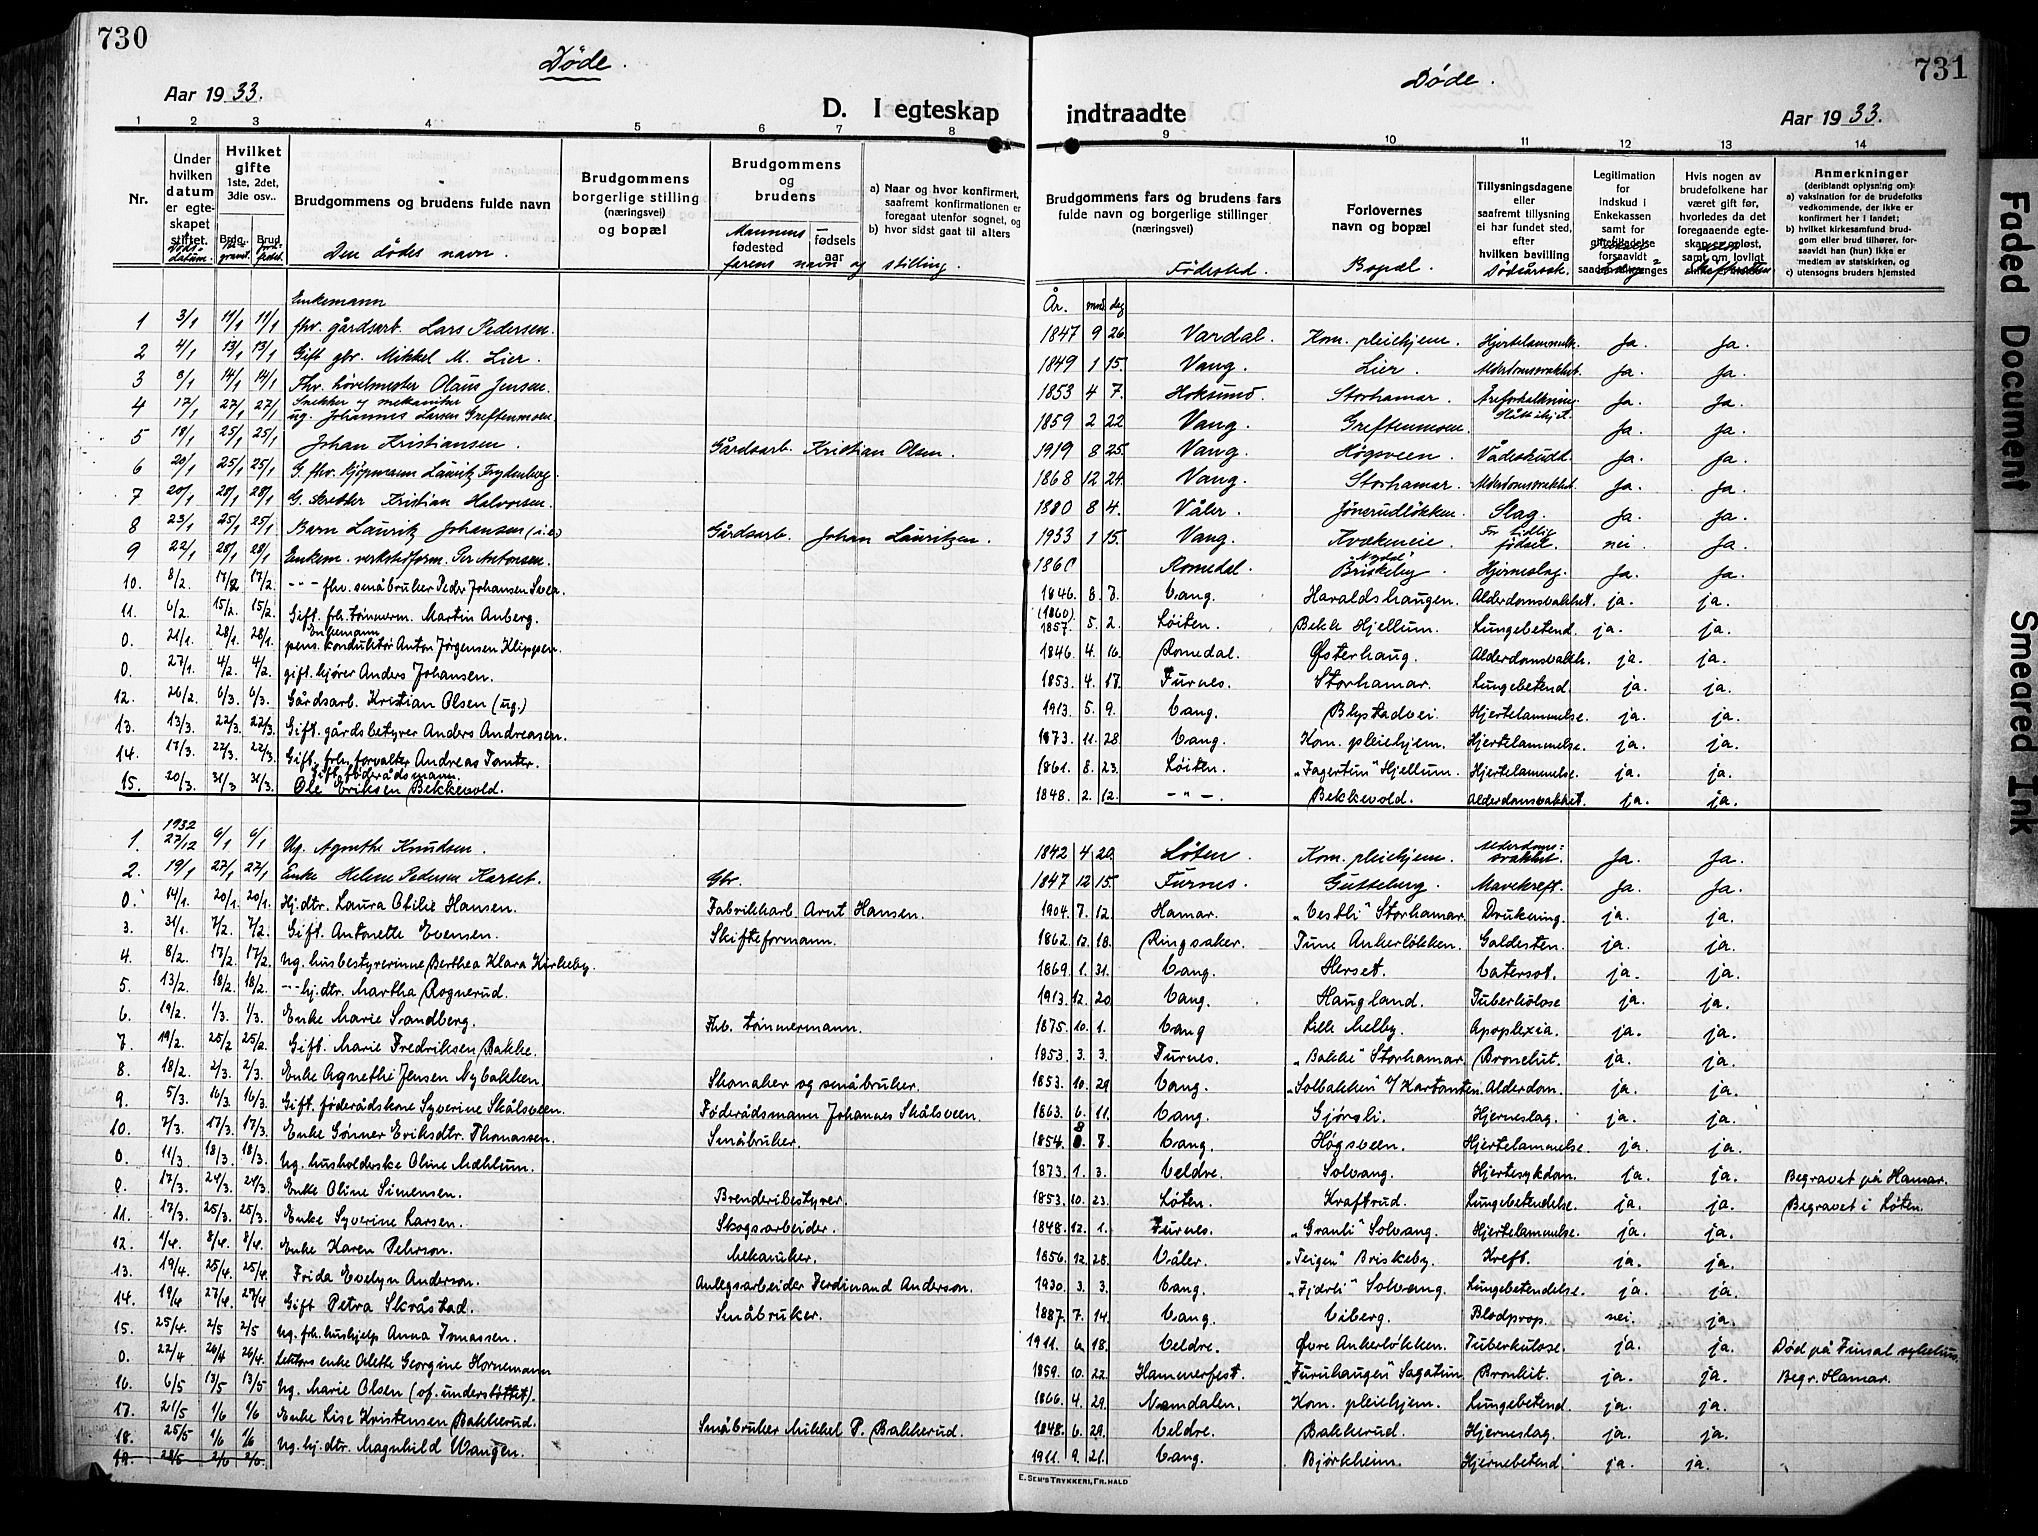 730
Døde.
Aar 1933.
D. I egteskap
1 2 3 4 5 6 7 8
Nr.
Under hvilken datum er egteskapet stiftet.
Hvilket gifte
1ste, 2det, 3die osv..
Brudgommens og brudens fulde navn
Den dødes navn.
Brudgommens borgerlige stilling (næringsvei) og bopæl
Brudgommens og brudens
fødested
fødsels aar
farens navn og stilling.
a) Naar og hvor konfirmert, saafremt konfirmationen er foregaat utenfor sognet, og
b) hvor sidst gaat til alters
Enkemann
1 3/1 11/1 11/1 fhv. gårdsarb. Lars Pedersen.
2 4/1 13/1 13/1 Gift gbr. Mikkel M. Lier.
3 8/1 14/1 14/1 Fhv. høvelmester Olaus Jensen.
Snekker og mekaniker
4 17/1 27/1 27/1 ug. Johannes Larsen Greftenmoen
5 18/1 25/1 25/1 Johan Kristiansen. Gårdsarb. Kristian Olsen.
6 20/1 25/1 25/1 G. fhv. kjøpmann Lauritz Frydenberg.
7 20/1 28/1 28/1 G. skredder Kristian Halvorsen.
8 23/1 25/1 25/1 Barn Lauritz Johansen (i.e.) Gårdsarb. Johan Lauritzen.
9 22/1 28/1 28/1 Enkem. verkstedform. Per Antonsen.
10. 8/2. 17/2 17/2. -"- fhv. småbruker Peder Johansen Svea.
11. 6/2. 15/2. 15/2. Gift. frh. tømmerm. Martin Anberg.
Enkemann
0. 21/1. 28/1. 28/1. pens. konduktør Anton Jørgensen Klippen.
0. 27/1. 4/2. 4/2. gift. kjører Anders Johansen.
12. 26/2. 6/3. 6/3. Gårdsarb. Kristian Olsen (ug.)
13. 13/3. 22/3. 22/3. Gift. gårdsbetyrer Anders Andreasen.
14. 17/3. 22/3. 22/3. Gift. frh. forvalter Andreas Tomter.
Gift. føderådsmann.
15. 20/3. 31/3 31/3. Ole Eriksen Bekkevold.
1932
1. 27/12 6/1 6/1 Ug. Agnethe Knudsen.
2. 19/1 27/1 27/1 Enke Helene Pedersen Karset. Gbr.
0. 14/1. 20/1 20/1. Hj.dtr. Laura Otilie Hansen. Fabrikkarb. Arnt Hansen.
3. 31/1. 7/2. 7/2. Gift. Antonette Evensen. Skifteformann.
4. 8/2. 17/2. 17/2. Ug. husbestyrerinne Berthea Klara Kirkeby.
5. 13/2. 18/2. 18/2. -"- hj.dtr. Martha Rognerud.
6. 19/2. 1/3. 1/3. Enke Marie Sandberg. Frh. tømmermann.
7. 19/2. 25/2 25/2. Gift. Marie Fredriksen Bakke.
8. 18/2. 2/3. 2/3. Enke Agnethe Jensen Nybakken. Skomaker og småbruker.
9. 5/3. 16/3. 16/3. Gift. føderådskone Syverine Skålsveen. Føderådsmann Johannes Skålsveen.
10. 7/3. 17/3. 17/3. Enke Gønner Eriksdtr. Thomassen. Småbruker.
0. 11/3. 18/3. 18/3. Ug. husholderske Oline Mæhlum.
0. 17/3. 24/3. 24/3. Enke Oline Simensen. Brenderibestyrer.
11. 17/3. 25/3. 25/3. Enke Syverine Larsen. Skogsarbeider.
12. 1/4. 8/4. 8/4. Enke Karen Pehrson. Mekaniker.
13. 19/4. 25/4. 25/4 Frida Evelyn Anderson. Anlegsarbeider Ferdinand Anderson.
14. 19/4 27/4. 27/4 Gift Petra Skråstad. Småbruker.
15. 25/4. 2/5 2/5 Ug. frh. hushjelp Anna Imassen.
0. 22/4 26/4 26/4. Lektors enke Odette Georgine Hornemann
16. 6/5 13/5 13/5 Ug. Marie Olsen (of. understøttet).
17. 21/5 1/6 1/6 Enke Lise Kristensen Bakkerud. Småbruker Mikkel P. Bakkerud.
18. 25/5 1/6 1/6 Ug. hj.dtr. Magnhild Wangen.
19. 28/5 2/6 2/6.
731
Døde.
indtraadte
Aar 1933.
9 10 11 12 13 14
Brudgommens fars og brudens fars fulde navn og borgerlige stillinger (næringsvei)
Fødested.
Forlovernes navn og bopæl
Bopæl.
Tillysningsdagene eller saafremt tillysning ei har fundet sted, efter hvilken bevilling
Dødsårsak.
Legitimation for indskud i Enkekassen samt for giftetilladelse forsaavidt saadan trænges
Hvis nogen av brudefolkene har været gift før, hvorledes da det foregaaende egteskap er opløst, samt om lovlig
Anmerkninger
(deriblandt oplysning om):
a) vaksination for de brudefolks vedkommende, der ikke er konfirmert her i landet;
b) hvilket kirkesamfund brudgom eller brud tilhører, forsaavidt han (hun) ikke er medlem av statskirken, og
c) utensogns bruders hjemsted
År. mnd dag
1847 9 26. Vardal. Kom. pleiehjem. Hjertelammelse. Ja. Ja.
1849 1 15. Vang. Lier. Alderdomssvakhet. Ja. Ja.
1853 4 7. Hoksund. Storhamar. Åreforkalkning. Ja. Ja.
1859 2 22 Vang. Greftenmoen. Slått ihjel. Ja. Ja.
1919 8 25. Vang. Høgsveen. Vådeskudd. Ja. Ja.
1868 12 24. Vang. Storhamar. Alderdomssvakhet. Ja. Ja.
1880 8 4. Våler. Jønerudløkken. Slag. Ja. Ja.
1933 1 15. Vang. Kvækeneie. For tidlig fødsel. nei. Ja.
1860 Romedal. "Nydal" Briskeby. Hjerneslag. Ja. Ja.
1846. 8. 7. Vang. Haraldshaugen. Alderdomsvakhet. ja. ja.
(1860) 1857. 5. 2. Løiten. Bekk Hjellum. Lungebetend. ja. ja.
1846. 4. 16. Romedal. Østerhaug. Alderdomsvakh. ja. ja.
1853. 4. 17. Furnes. Storhamar. Lungebetend. ja. ja.
1913. 5. 9. Vang. Blystadvei. Hjertelammelse. ja. ja.
1873. 11. 28 Vang. Kom. pleiehjem. Hjertelammelse. ja. ja.
1861. 8. 23. Løiten. "Fagertun" Hjellum. Hjertelammelse. ja. ja.
1848. 2. 12. -"-. Bekkevold. Alderdomsvakhet. ja. ja.
1842 4 20. Løten. Kom. pleiehjem. Alderdomssvakhet. Ja. Ja.
1847 12 15. Furnes. Gutteberg. Mavekreft. Ja. Ja.
1904. 7. 12. Hamar. "Vestli" Storhamar. Drukning. ja. ja.
1862. 12. 18. Ringsaker. Tune Ankerløkken. Galdesten. ja. ja.
1869. 1. 31. Vang. Herset. Vatersot. ja. ja.
1913. 12. 20 Vang. Haugland. Tuberkulose ja. ja.
1875. 10. 1. Vang Lille Melby. Apoplexia. ja. ja.
1853. 3. 3. Furnes. "Bakke" Storhamar. Bronchit. ja. ja.
1853. 10. 29. Vang. "Solbakken" v/ Kartomten. Alderdom. ja. ja.
1863. 6. 11. Vang. Gjørsli. Hjerneslag. ja. ja.
1854. 8. 7. Vang. Høgsveen. Hjertelammelse. ja. ja.
1873. 1. 3. Veldre. Solvang. Hjertesykdom. ja. ja. Begravet på Hamar.
1853. 10. 23. Løten. Kraftrud. Lungebetendelse. ja. ja. Begravet i Løten.
1848. 12. 1. Furnes. "Granli" Solvang. Hjertelammelse. ja. ja.
1856. 12. 28. Våler. "Teigen" Briskeby. Kreft. ja. ja.
1930. 3. 3. Vang. "Fjdrli" Solvang. Lungebetendelse. ja. ja.
1887. 7. 14. Vang. Viberg. Blodprop. nei. ja.
1911. 6. 18. Veldre. Øvre Ankerløkken. Tuberkulose. ja. ja. Død på Finsal sykehus.
1859. 10. 22. Hammerfest. "Furuhaugen" Sagatun. Bronkit. ja. ja. Begr. Hamar.
1866. 4. 29. Namdalen. Kom. pleiehjem. Lungebetend. ja. ja.
1848. 6. 29. Veldre. Bakkerud. Hjerneslag. ja. ja.
1911. 9. 21. Vang. Bjørkheim. Hjernebetend. ja. ja.
E. SEM'S TRYKKERI, FR.HALD
Faded Document
Smeared Ink